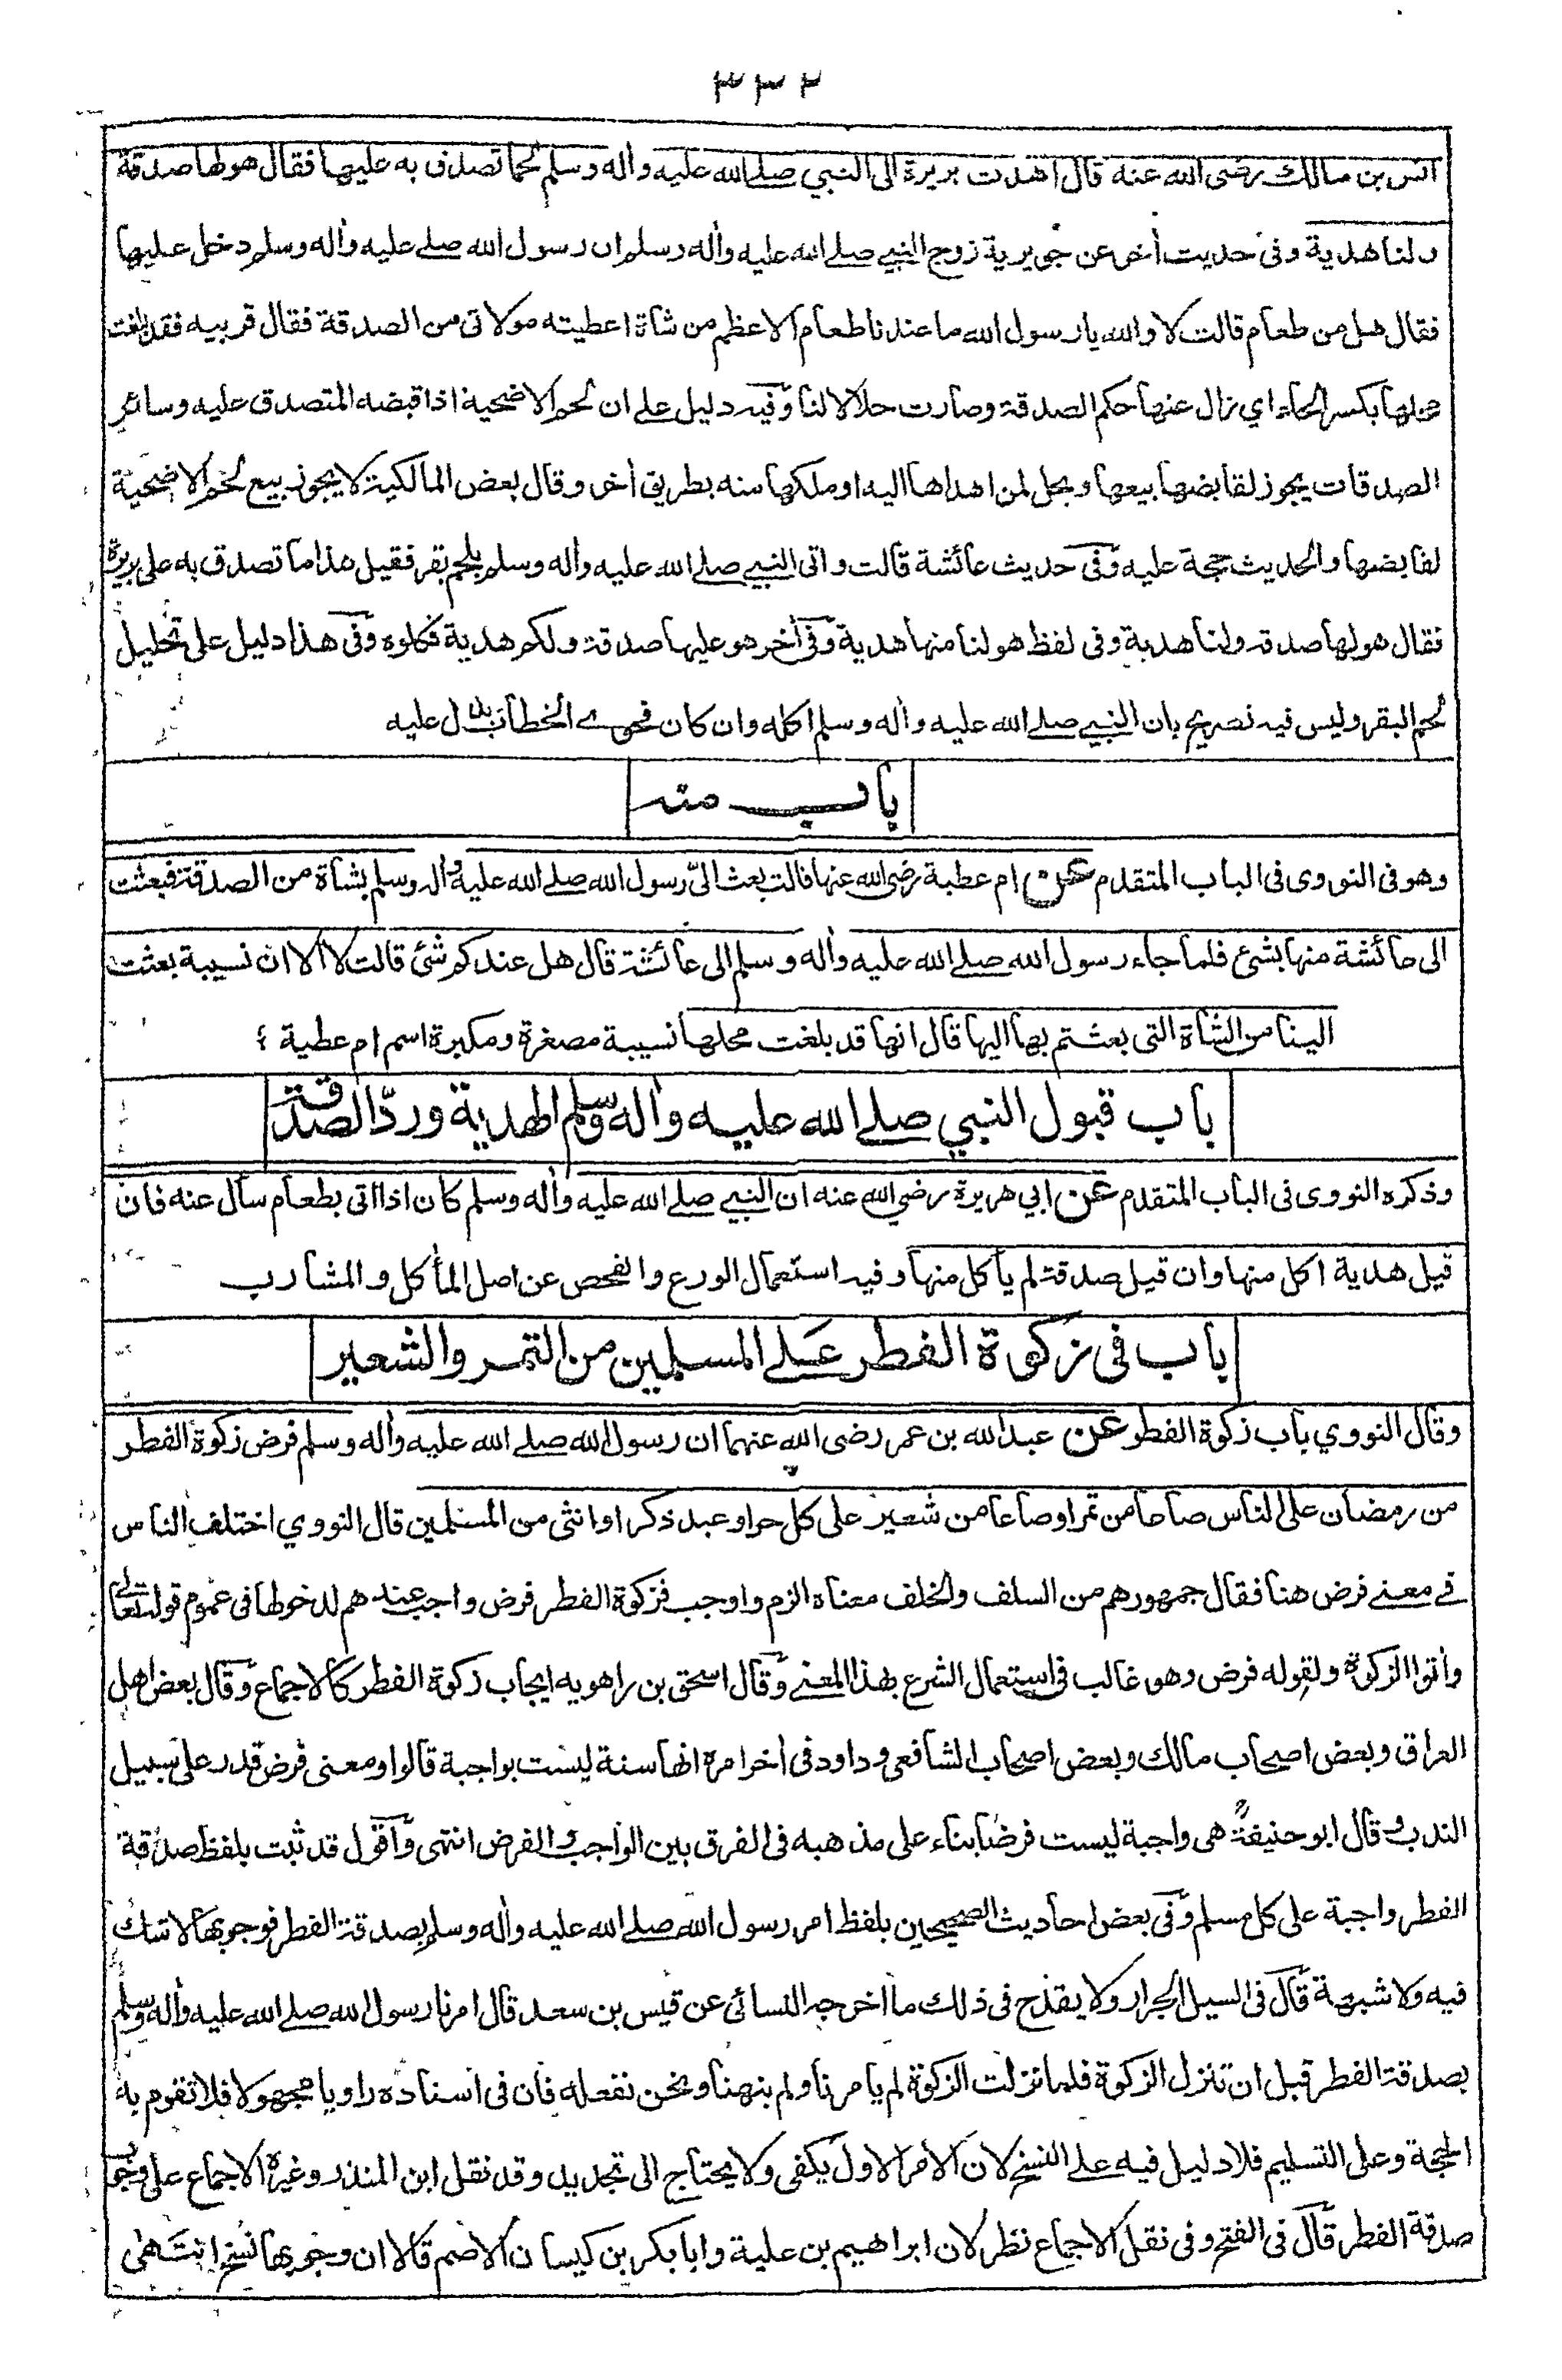 ٣٣٢
انس بن مالك رضى الله عنه قال اهدت بريرة الى النبي صلى الله عليه وأله وسلم لحما تصدق به عليها فقال هو لها صدقة
ولنا هدية وفى حديث أخر عن جويرية زوج النبي صلى الله عليه وأله وسلم ان رسول الله صلى عليه وأله وسلم دخل عليها
فقال هل من طعام قالت لا والله يا رسول الله ما عندنا طعام الا عظم من شاة اعطيته مولاتى من الصدقة فقال قربيه فقد بلغت
محلها بكسر الحاء اي زال عنها حكم الصدقة وصارت حلالا لنا وفيه دليل على ان لحم الاضحية اذا قبضه المتصدق عليه وسائر
الصدقات يجوز لقابضها بيعها ويحل لمن اهداها اليه او ملكها منه بطريق أخر وقال بعض المالكية لا يجوز بيع لحم الاضحية
لقابضها والحديث حجة عليه وفى حديث عائشة قالت واتى النبي صلى الله عليه وأله وسلم بلحم بقر فقيل هذا ما تصدق به على بريرة
فقال هو لها صدقه ولنا هدية وفى لفظ هو لنا منها هدية وفى أخر هو عليها صدقة ولكم هدية فكلوه وفى هذا دليل على تحليل
لحم البقر وليس فيه تصريح بان النبي صلى الله عليه وأله وسلم اكله وان كان فحوى الخطاب يدل عليه
باب منه
وهو فى النووى فى الباب المتقدم عن ام عطية رضى الله عنها قالت بعث الىّ رسول الله صلى الله عليه وأله وسلم بشاة من الصدقة فبعثت
الى عائشة منها بشئ فلما جاء رسول الله صلى الله عليه وأله وسلم الى عائشة قال هل عندكم شئ قالت لا الا ان نسيبة بعثت
الينا من الشاة التى بعثتم بها اليها قال انها قد بلغت محلها نسيبة مصغرة ومكبرة اسم ام عطية
باب قبول النبي صلى الله عليه وأله وسلم الهدية وردّ الصدقة
وذكره النووى فى الباب المتقدم عن ابي هريرة رضي الله عنه ان النبي صلى الله عليه وأله وسلم كان اذا اتى بطعام سأل عنه فان
قيل هدية اكل منها وان قيل صدقة لم يأكل منها وفيه استعمال الورع والفحص عن اصل المأكل والمشارب
باب فى زكوة الفطر على المسلمين من التمر والشعير
وقال النووي باب زكوة الفطر عن عبد الله بن عمر رضى الله عنهما ان رسول الله صلى الله عليه وأله وسلم فرض زكوة الفطر
من رمضان على الناس صاعا من تمر او صاعا من شعير على كل حر او عبد ذكر او انثى من المسلمين قال النووي اختلف الناس
فى معنى فرض هنا فقال جمهورهم من السلف والخلف معناه الزم واوجب فزكوة الفطر فرض واجب عند هم لدخولها فى عموم قوله تعالى
وأتوا الزكوة ولقوله فرض وهو غالب فى استعمال الشرع بهذا المعنى وقال اسحق بن راهويه ايجاب زكوة الفطر كالاجماع وقال بعض اهل
العراق وبعض اصحاب مالك وبعض اصحاب الشافعى وداود فى أخر امره انها سنة ليست بواجبة قالوا ومعنى فرض قدر على سبيل
الندب وقال ابو حنيفة هى واجبة ليست فرضا بناء على مذهبه فى الفرق بين الواجب والفرض انتهى وأقول قد ثبت بلفظ صدقة
الفطر واجبة على كل مسلم وفى بعض احاديث الصحيحين بلفظ امر رسول الله صلى الله عليه وأله وسلم بصدقة الفطر فوجوبها لا شك
فيه ولا شبهة قال فى السيل الجرار ولا يقدح فى ذلك ما اخرجه النسائى عن قيس بن سعد قال امرنا رسول الله صلى الله عليه وأله وسلم
بصدقة الفطر قبل ان تنزل الزكوة فلما نزلت الزكوة لم يأمرنا ولم ينهنا ونحن نفعله فان فى اسناده راويا مجهولا فلا تقوم به
الحجة وعلى التسليم فلا دليل فيه على النسخ لان الامر الاول يكفى ولا يحتاج الى تجديد وقد نقل ابن المنذر وغيره الاجماع على وجوب
صدقة الفطر قال فى الفتح وفى نقل الاجماع نظر لان ابراهيم بن علية وابا بكر بن كيسان الاصم قالا ان وجوبها نسخ انتهى